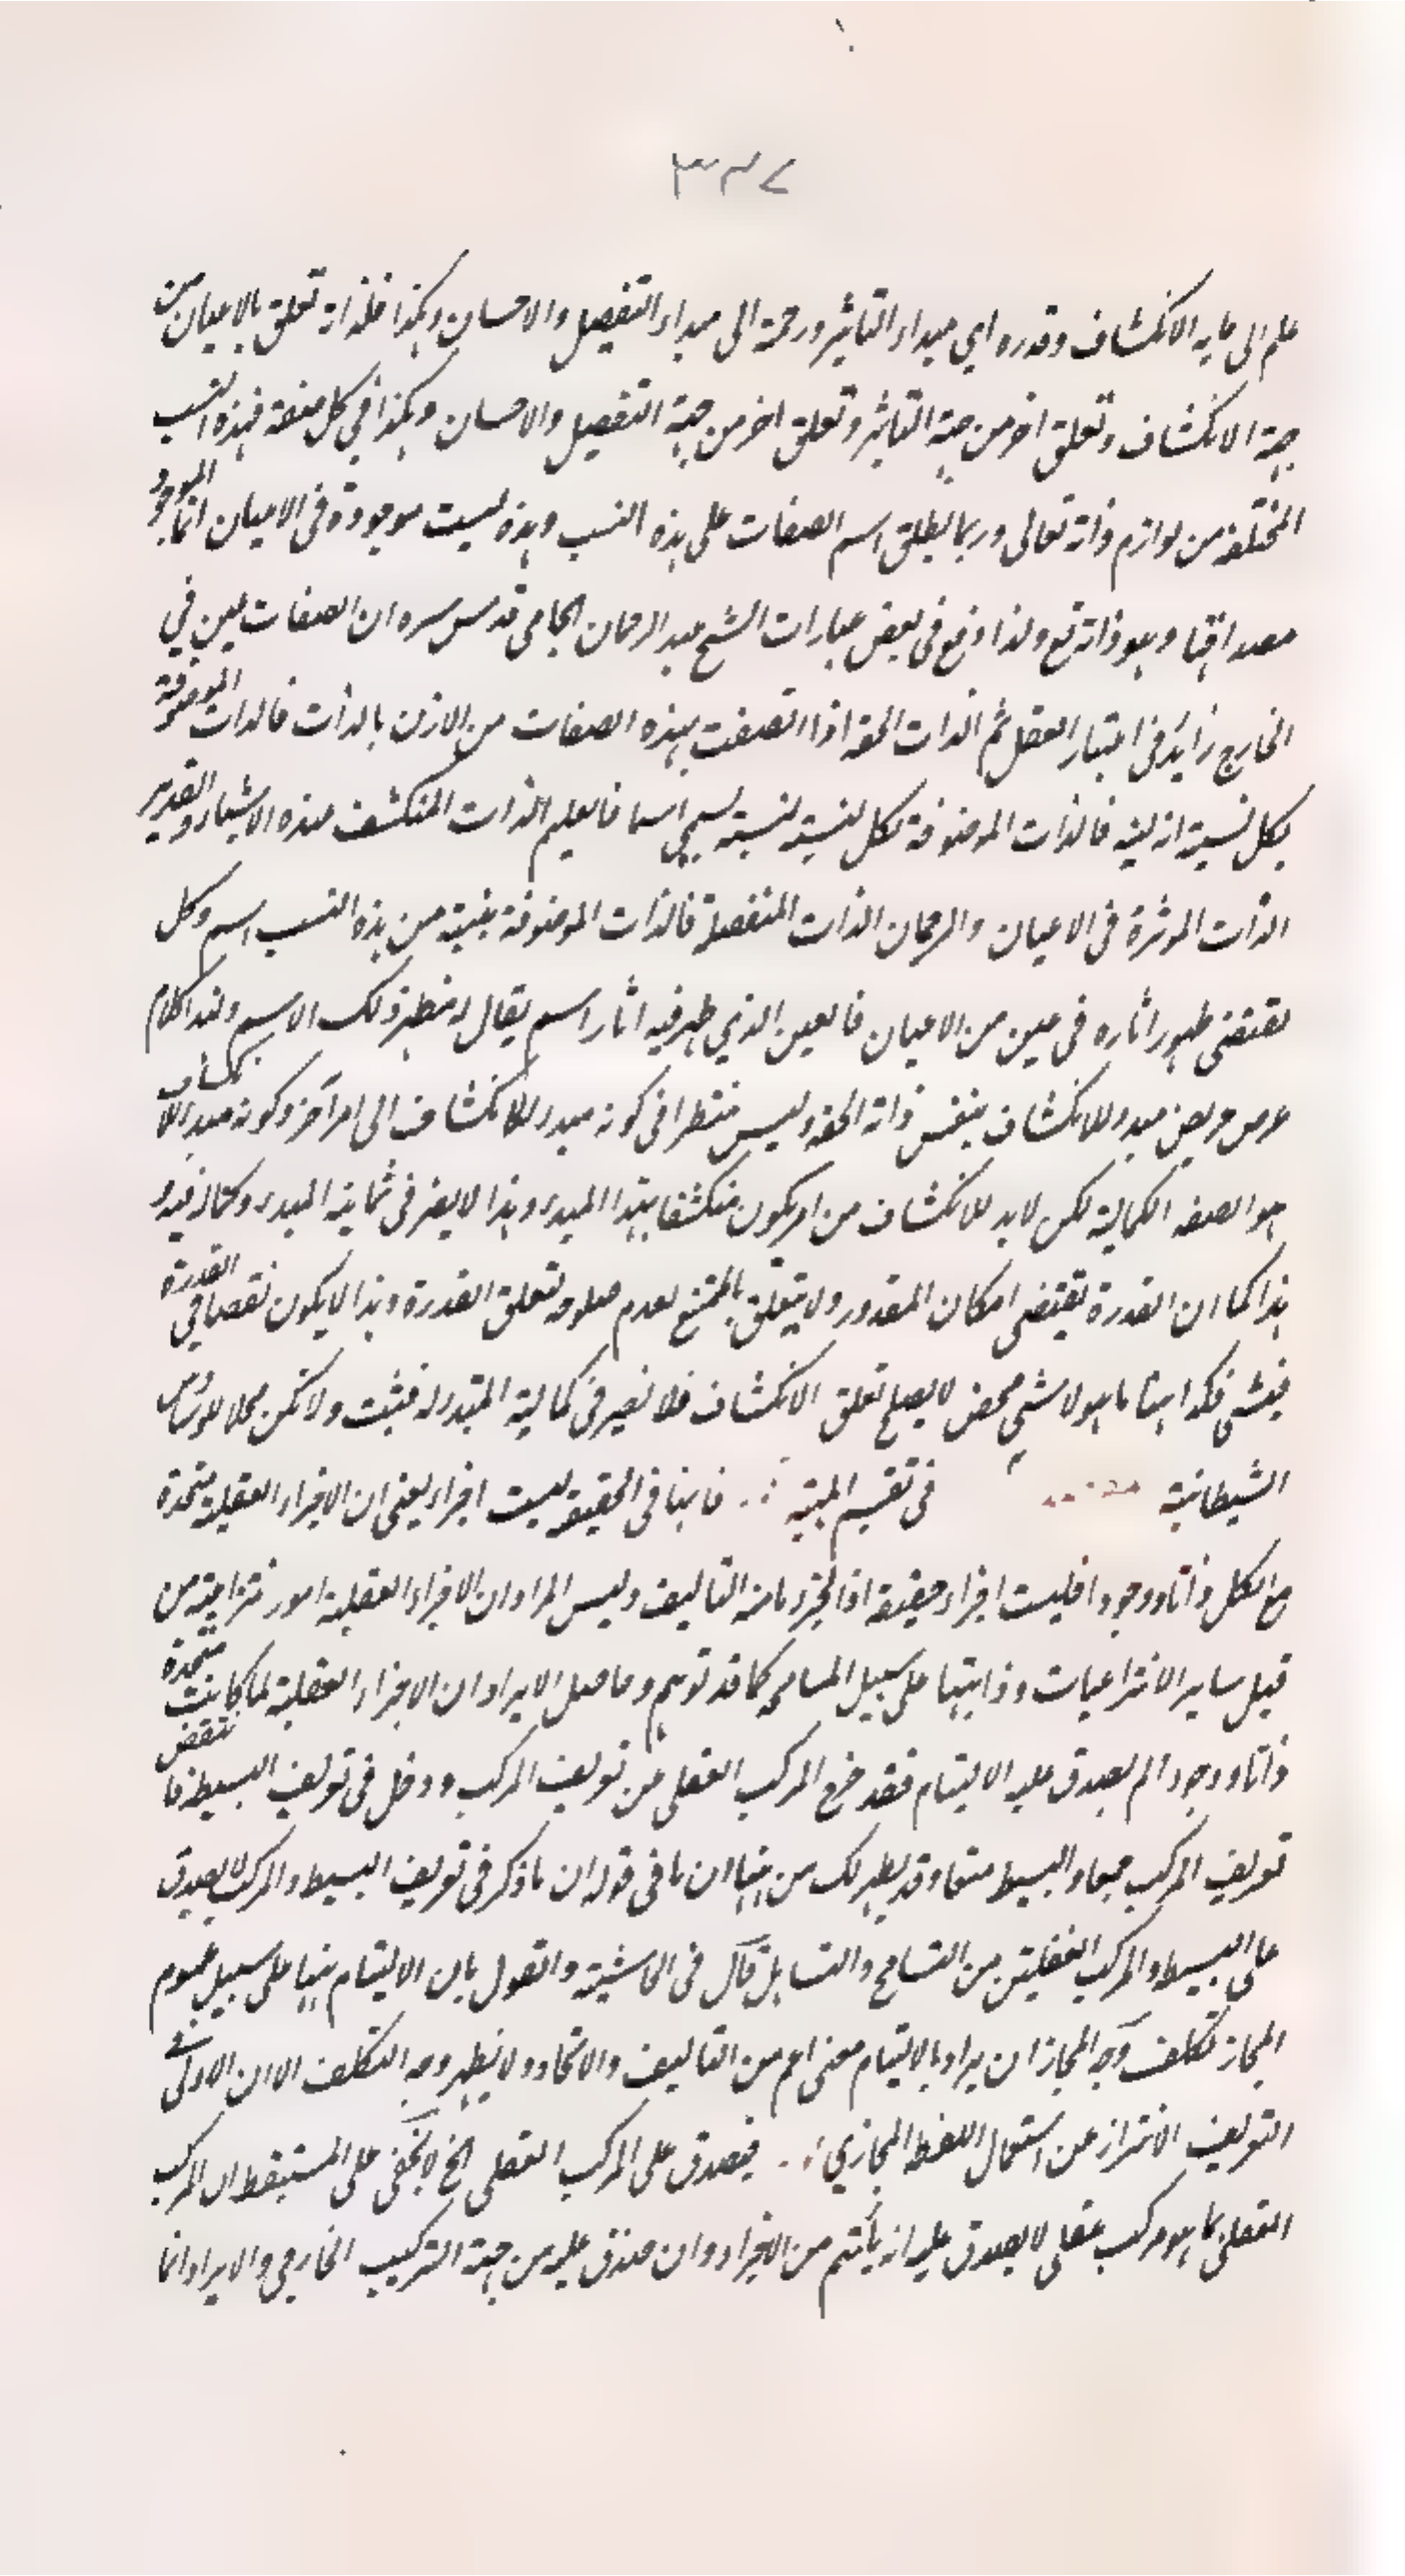 ٣٢٧
علم الى ما به الانكشاف وقدره اي مبداء التاثير ورحمة الى مبداء التفضيل والاحسان وهكذا فلذاته تعلق بالاعيان من
جهة الانكشاف وتعلق اخر من جهة التاثير وتعلق اخر من جهة التفضيل والاحسان وهكذا في كل صفة فهذه النسب
المختلفة من لوازم ذاته تعالى وربما يطلق اسم الصفات على هذه النسب وهذه ليست موجودة في الاعيان انما الموجود
مصداقها وهو ذاته تع ولذا وقع في بعض عبارات الشيخ عبد الرحمان الجامي قدس سره ان الصفات عين في
الخارج زايد في اعتبار العقل ثم الذات الحقة اذا اتصفت بهذه الصفات من الازل بالذات فالذات الموصوفة
بكل نسبة ازلية فالذات الموصوفة بكل نسبة نسبة يسمى اسما فالعليم الذات المنكشف هذه الاشياء والقدير
الذات الموثرة في الاعيان والرحمان الذات المتفضلة فالذات الموصوفة بنسبة من هذه النسب اسم وكل
يقتضي ظهور اثاره في عين من الاعيان فالعين الذي ظهر فيه اثار اسم يقال له مظهر ذلك الاسم ولهذا كلام
عرض عريض مبدء للانكشاف بنفس ذاته الحقة وليس منتظرا في كونه مبدء للانكشاف الى امر آخر وكونه مبدء الانكشاف
هو الصفة الكمالية لكن لابد للانكشاف من امر يكون منكشفا بهذا المبدء وهذا لا يضر في تمامية المبدء وكماله فيه و
هذا كما ان القدرة يقتضي امكان المقدور ولا يتعلق بالممتنع لعدم صلوحه لتعلق القدرة وهذا لا يكون نقصا في القدرة
فيشي فكذا هنا ما هو لا شي محض لا يصلح تعلق الانكشاف فلا نضير في كمالية المبدء له فيثبت ولا تكن محلا للوساوس
الشيطانية في تقسيم المهية فانها في الحقيقة ليست اجزاء يعني ان الاجزاء العقلية متحدة
مع الكل ذاتا ووجودا فليست اجزاء حقيقة اذ الجزء ما منه التاليف وليس المراد ان الاجزاء العقلية امور انتزاعية من
قبيل ساير الانتزاعيات وذاتيتها على سبيل المسامحة كما قد توهم وحاصل الايراد ان الاجزاء العقلية لما كانت متحدة
ذاتا ووجودا لم يصدق عليه الالتيام فقد خرج المركب العقلي من تعريف المركب ودخل في تعريف البسيط فانتقض
تعريف المركب جمعا والبسيط منعا وقد يظهر لك من هنا ان ما في قوله ان ما ذكر في تعريف البسيط والمركب لا يصدق
على البسيط والمركب العقليين من التسامح والتساهل قال في الحاشية والقول بان الالتيام هنا على سبيل عموم
المجاز تكلف وجه المجاز ان يراد بالالتيام معنى اعم من التاليف والاتحاد ولا يظهر وجه التكلف الا ان الاولى في
التعريف الاحتراز عن استعمال اللفظ المجازي فيصدق على المركب العقلي الخ لا يخفى على المستيقظ ان المركب
العقلي بما هو مركب عقلي لا يصدق عليه انه يلتئم من الاجزاء وان صدق عليه من جهة التركيب الخارجي والايراد انما